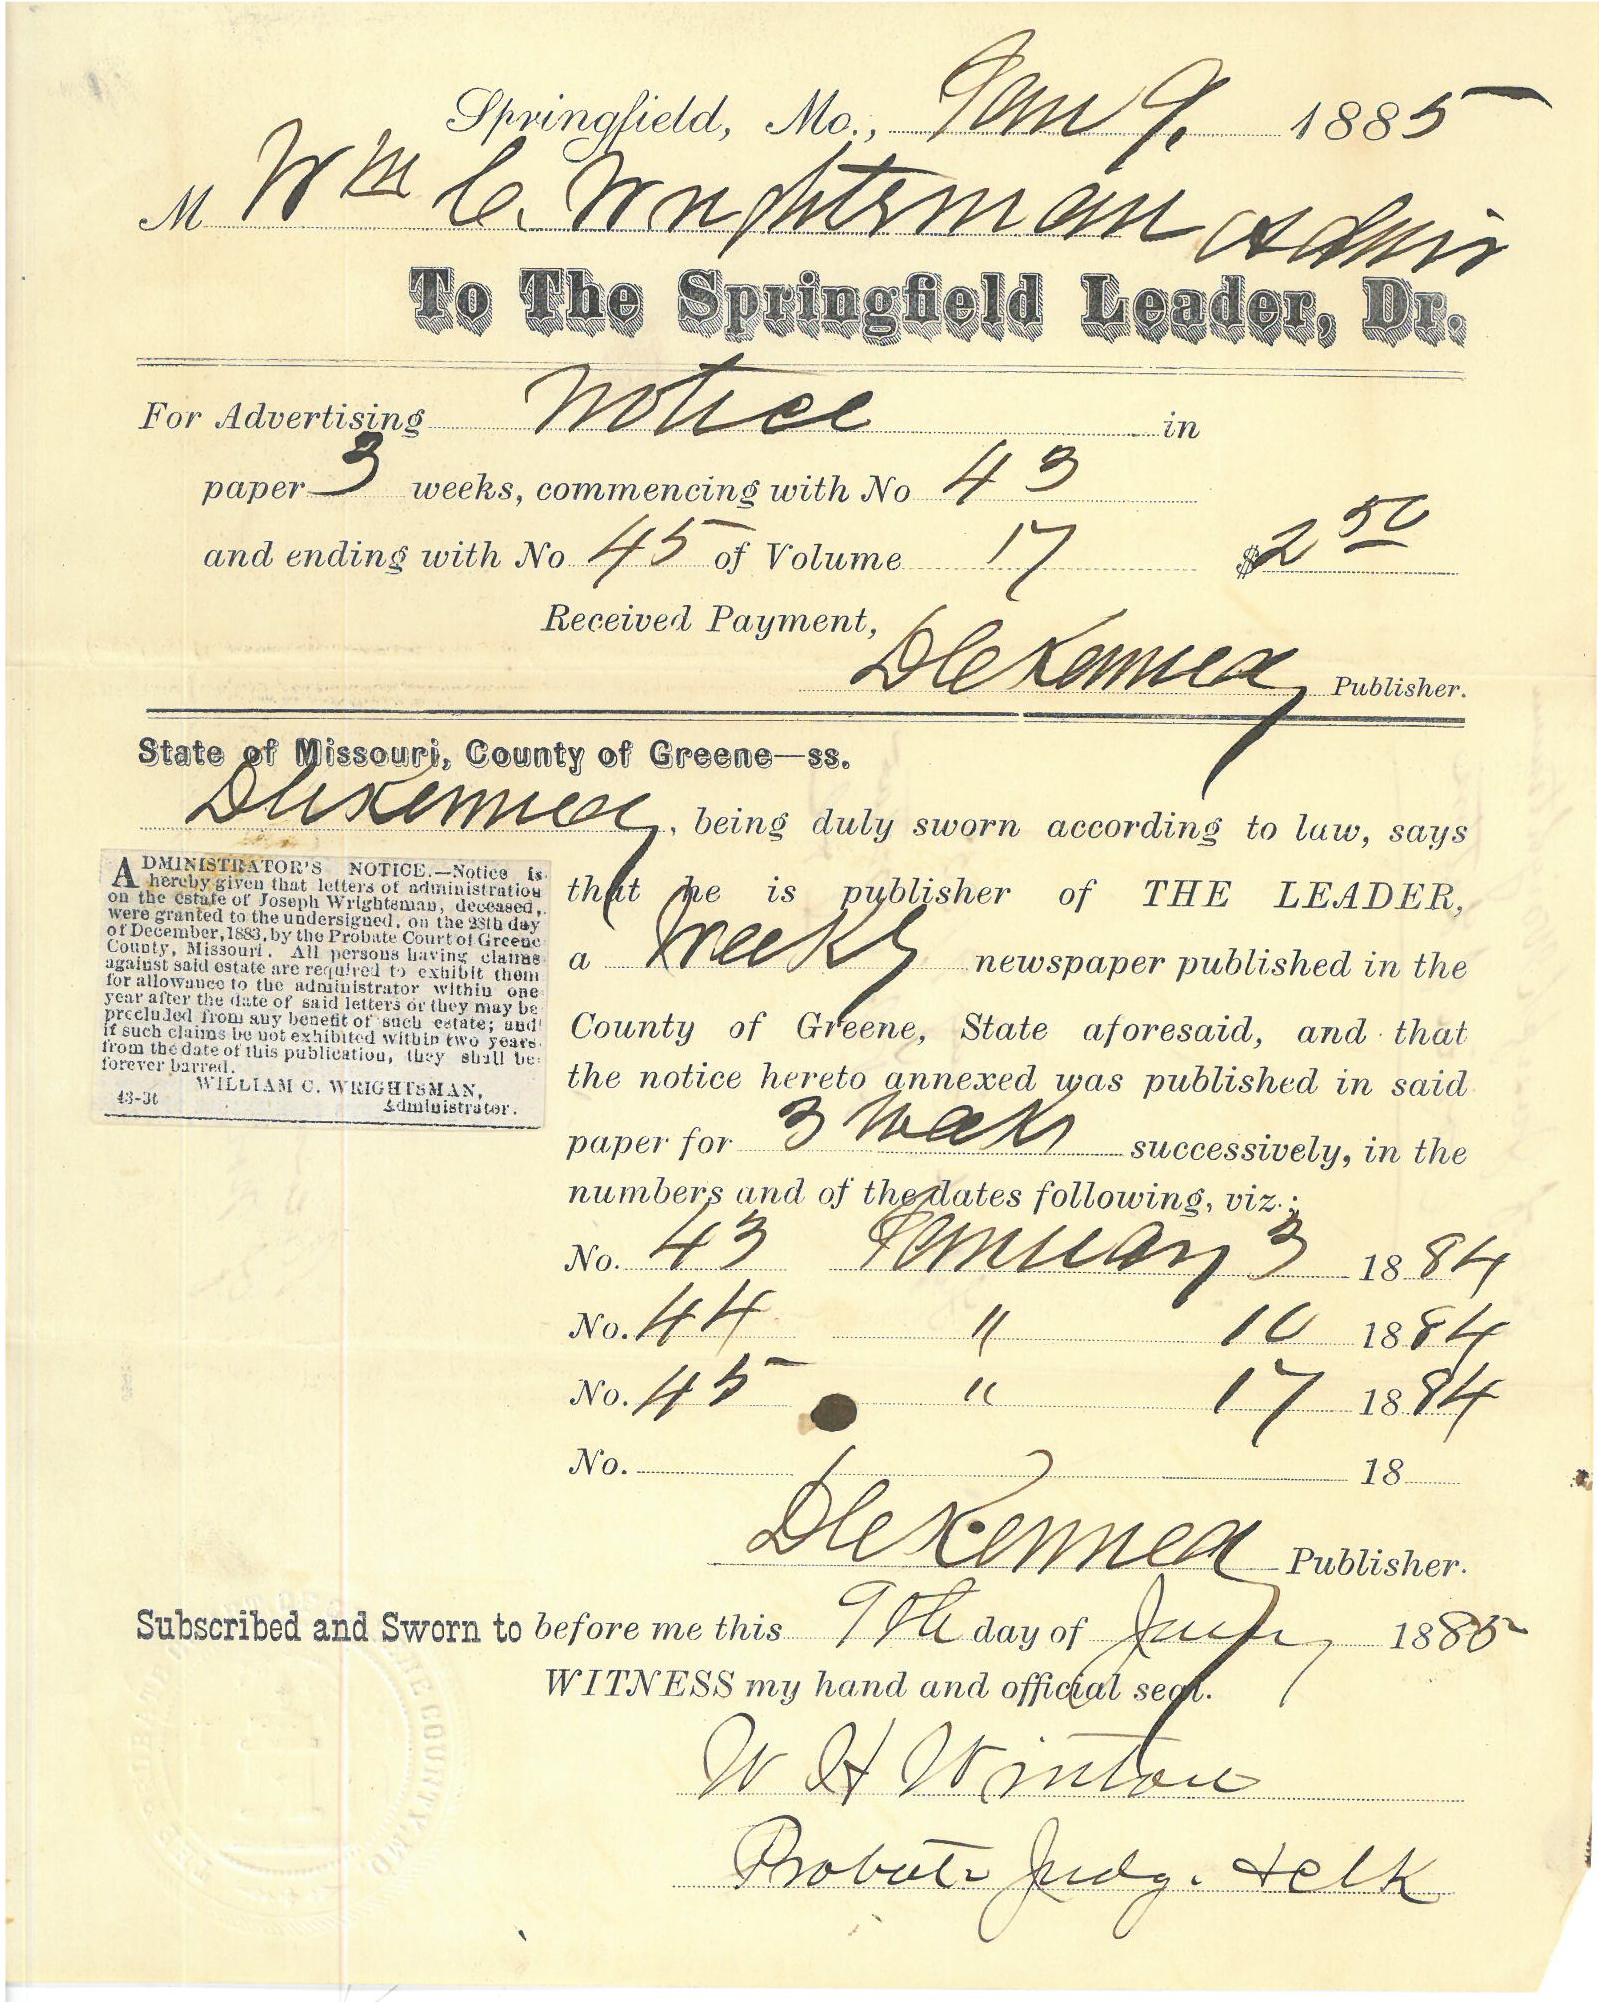 Springfield, Mo., Jan 9. 1885
M Wm C. Wrightsman Admir
To The Springfield Leader, Dr.
For Advertising Notice in
paper 3 weeks, commencing with No 43
and ending with No 45 of Volume 17 $2 50
Received Payment,
D C Kennedy Publisher.
State of Missouri, County of Greene—ss.
D C Kennedy, being duly sworn according to law, says
that he is publisher of THE LEADER,
a Weekly newspaper published in the
County of Greene, State aforesaid, and that
the notice hereto annexed was published in said
paper for 3 weeks successively, in the
numbers and of the dates following, viz.:
ADMINISTRATOR'S NOTICE.—Notice is
hereby given that letters of administration
on the estate of Joseph Wrightsman, deceased,
were granted to the undersigned, on the 28th day
of December, 1883, by the Probate Court of Greene
County, Missouri. All persons having claims
against said estate are required to exhibit them
for allowance to the administrator within one
year after the date of said letters or they may be
precluded from any benefit of such estate; and
if such claims be not exhibited within two years
from the date of this publication, they shall be
forever barred.
WILLIAM C. WRIGHTSMAN,
43-3t Administrator.
No. 43 January 3 1884
No. 44 " 10 1884
No. 45 " 17 1884
No. 18
D C Kennedy Publisher.
Subscribed and Sworn to before me this 9th day of Jany 1885
WITNESS my hand and official seal.
W H Winton
Probate Judg. & clk
COUNTY MO.